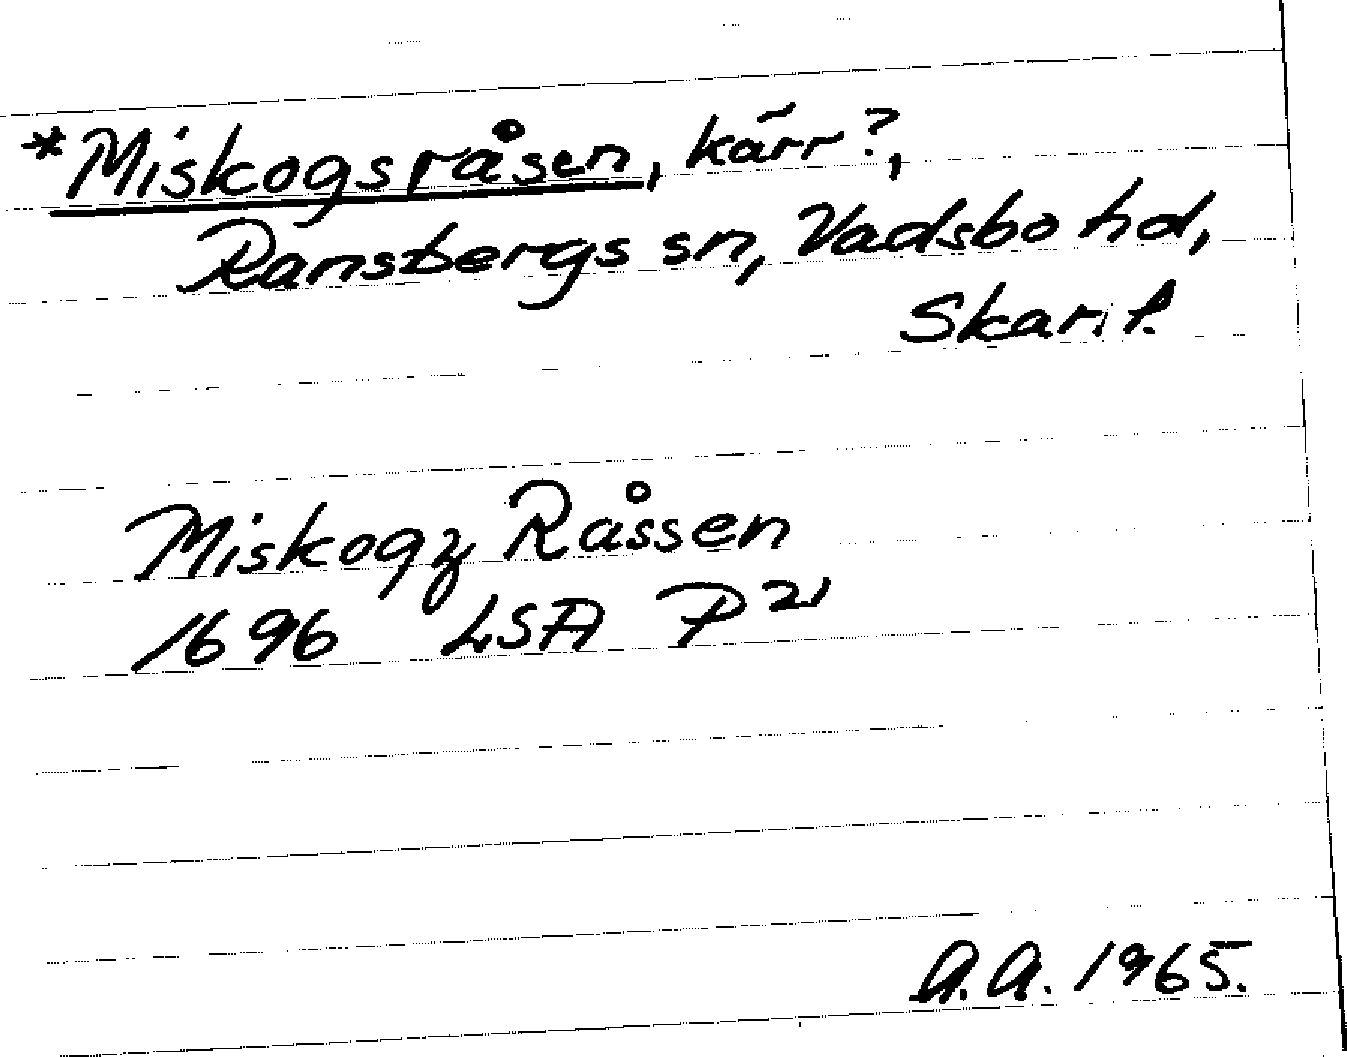 *Miskogsråsen, kärr?,
Ransbergs sn, Vadsbo hd,
Skar. l.
Miskogz Råssen
1696 LSA P 21
A.A. 1965.